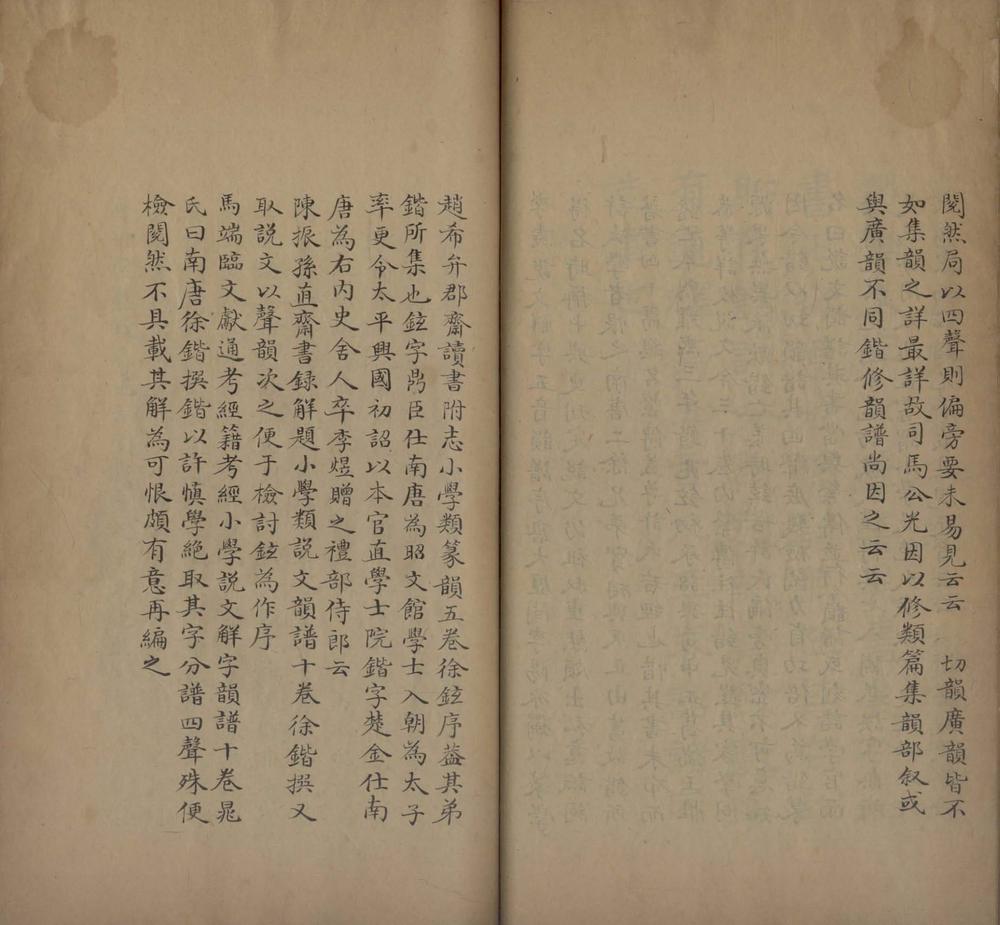 閱然局以四聲則偏旁要未易見云云　切韻廣韻皆不
如集韻之詳最詳故司馬公光因以修類篇集韻部敘或
與廣韻不同鍇修韻譜尚因之云云
趙希弁郡齋讀書附志小學類篆韻五卷徐鉉序葢其弟
鍇所集也鉉字鼎臣仕南唐為昭文館學士入朝為太子
率更令太平興國初詔以本官直學士院鍇字楚金仕南
唐為右内史舍人卒李煜贈之禮部侍郎云
陳振孫直齋書録解題小學類説文韻譜十卷徐鍇撰又
取説文以聲韻次之便于檢討鉉為作序
馬端臨文獻通考經籍考經小學説文解字韻譜十卷晁
氏曰南唐徐鍇撰鍇以許慎學絶取其字分譜四聲殊便
檢閱然不具載其解為可恨頗有意再編之